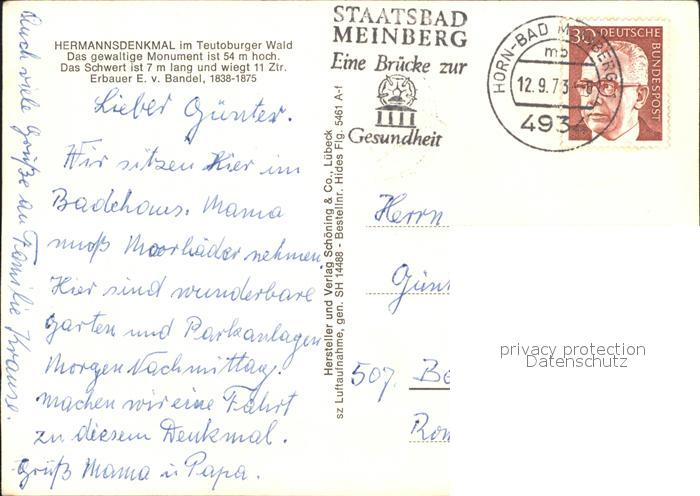 HERMANNSDENKMAL im Teutoburger Wald
Das gewaltige Monument ist 54 m hoch.
Das Schwert ist 7 m lang und wiegt 11 Ztr.
Erbauer E. v. Bandel, 1838-1875
Lieber Günter.
Wir sitzen hier im
Badehaus. Mama
muß Moorbäder nehmen.
Hier sind wunderbare
Garten und Parkanlagen
Morgen Nachmittag
machen wir eine Fahrt
zu diesem Denkmal.
Gruß Mama u Papa.
Auch viele Grüße an Familie Krause.
Hersteller und Verlag Schöning & Co., Lübeck
sz Luftaufnahme, gen. SH 14488 - Bestellnr. Hides Flg. 5461 A-f
STAATSBAD
MEINBERG
Eine Brücke zur
Gesundheit
HORN-BAD MEINBERG
mb
12.9.73
4934
30 DEUTSCHE
BUNDESPOST
Herrn
Gün
507. Be
Rom
privacy protection
Datenschutz